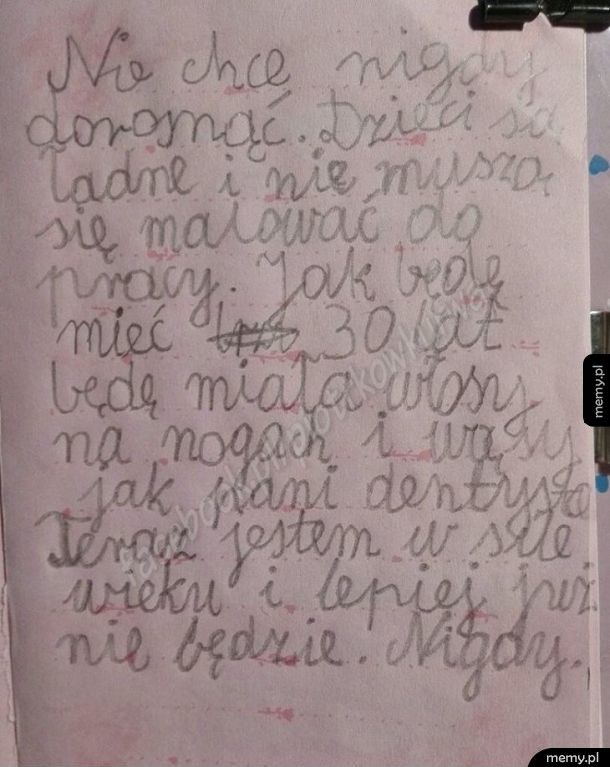 Nie chcę nigdy
dorosnąć. Dzieci są
ładne i nie muszą
się malować do
pracy. Jak będę
mieć 30 lat
będę miała włosy
na nogach i wąsy
jak pani dentysta
Teraz jestem w sile
wieku i lepiej już
nie będzie. Nigdy.
memy.pl
memy.pl